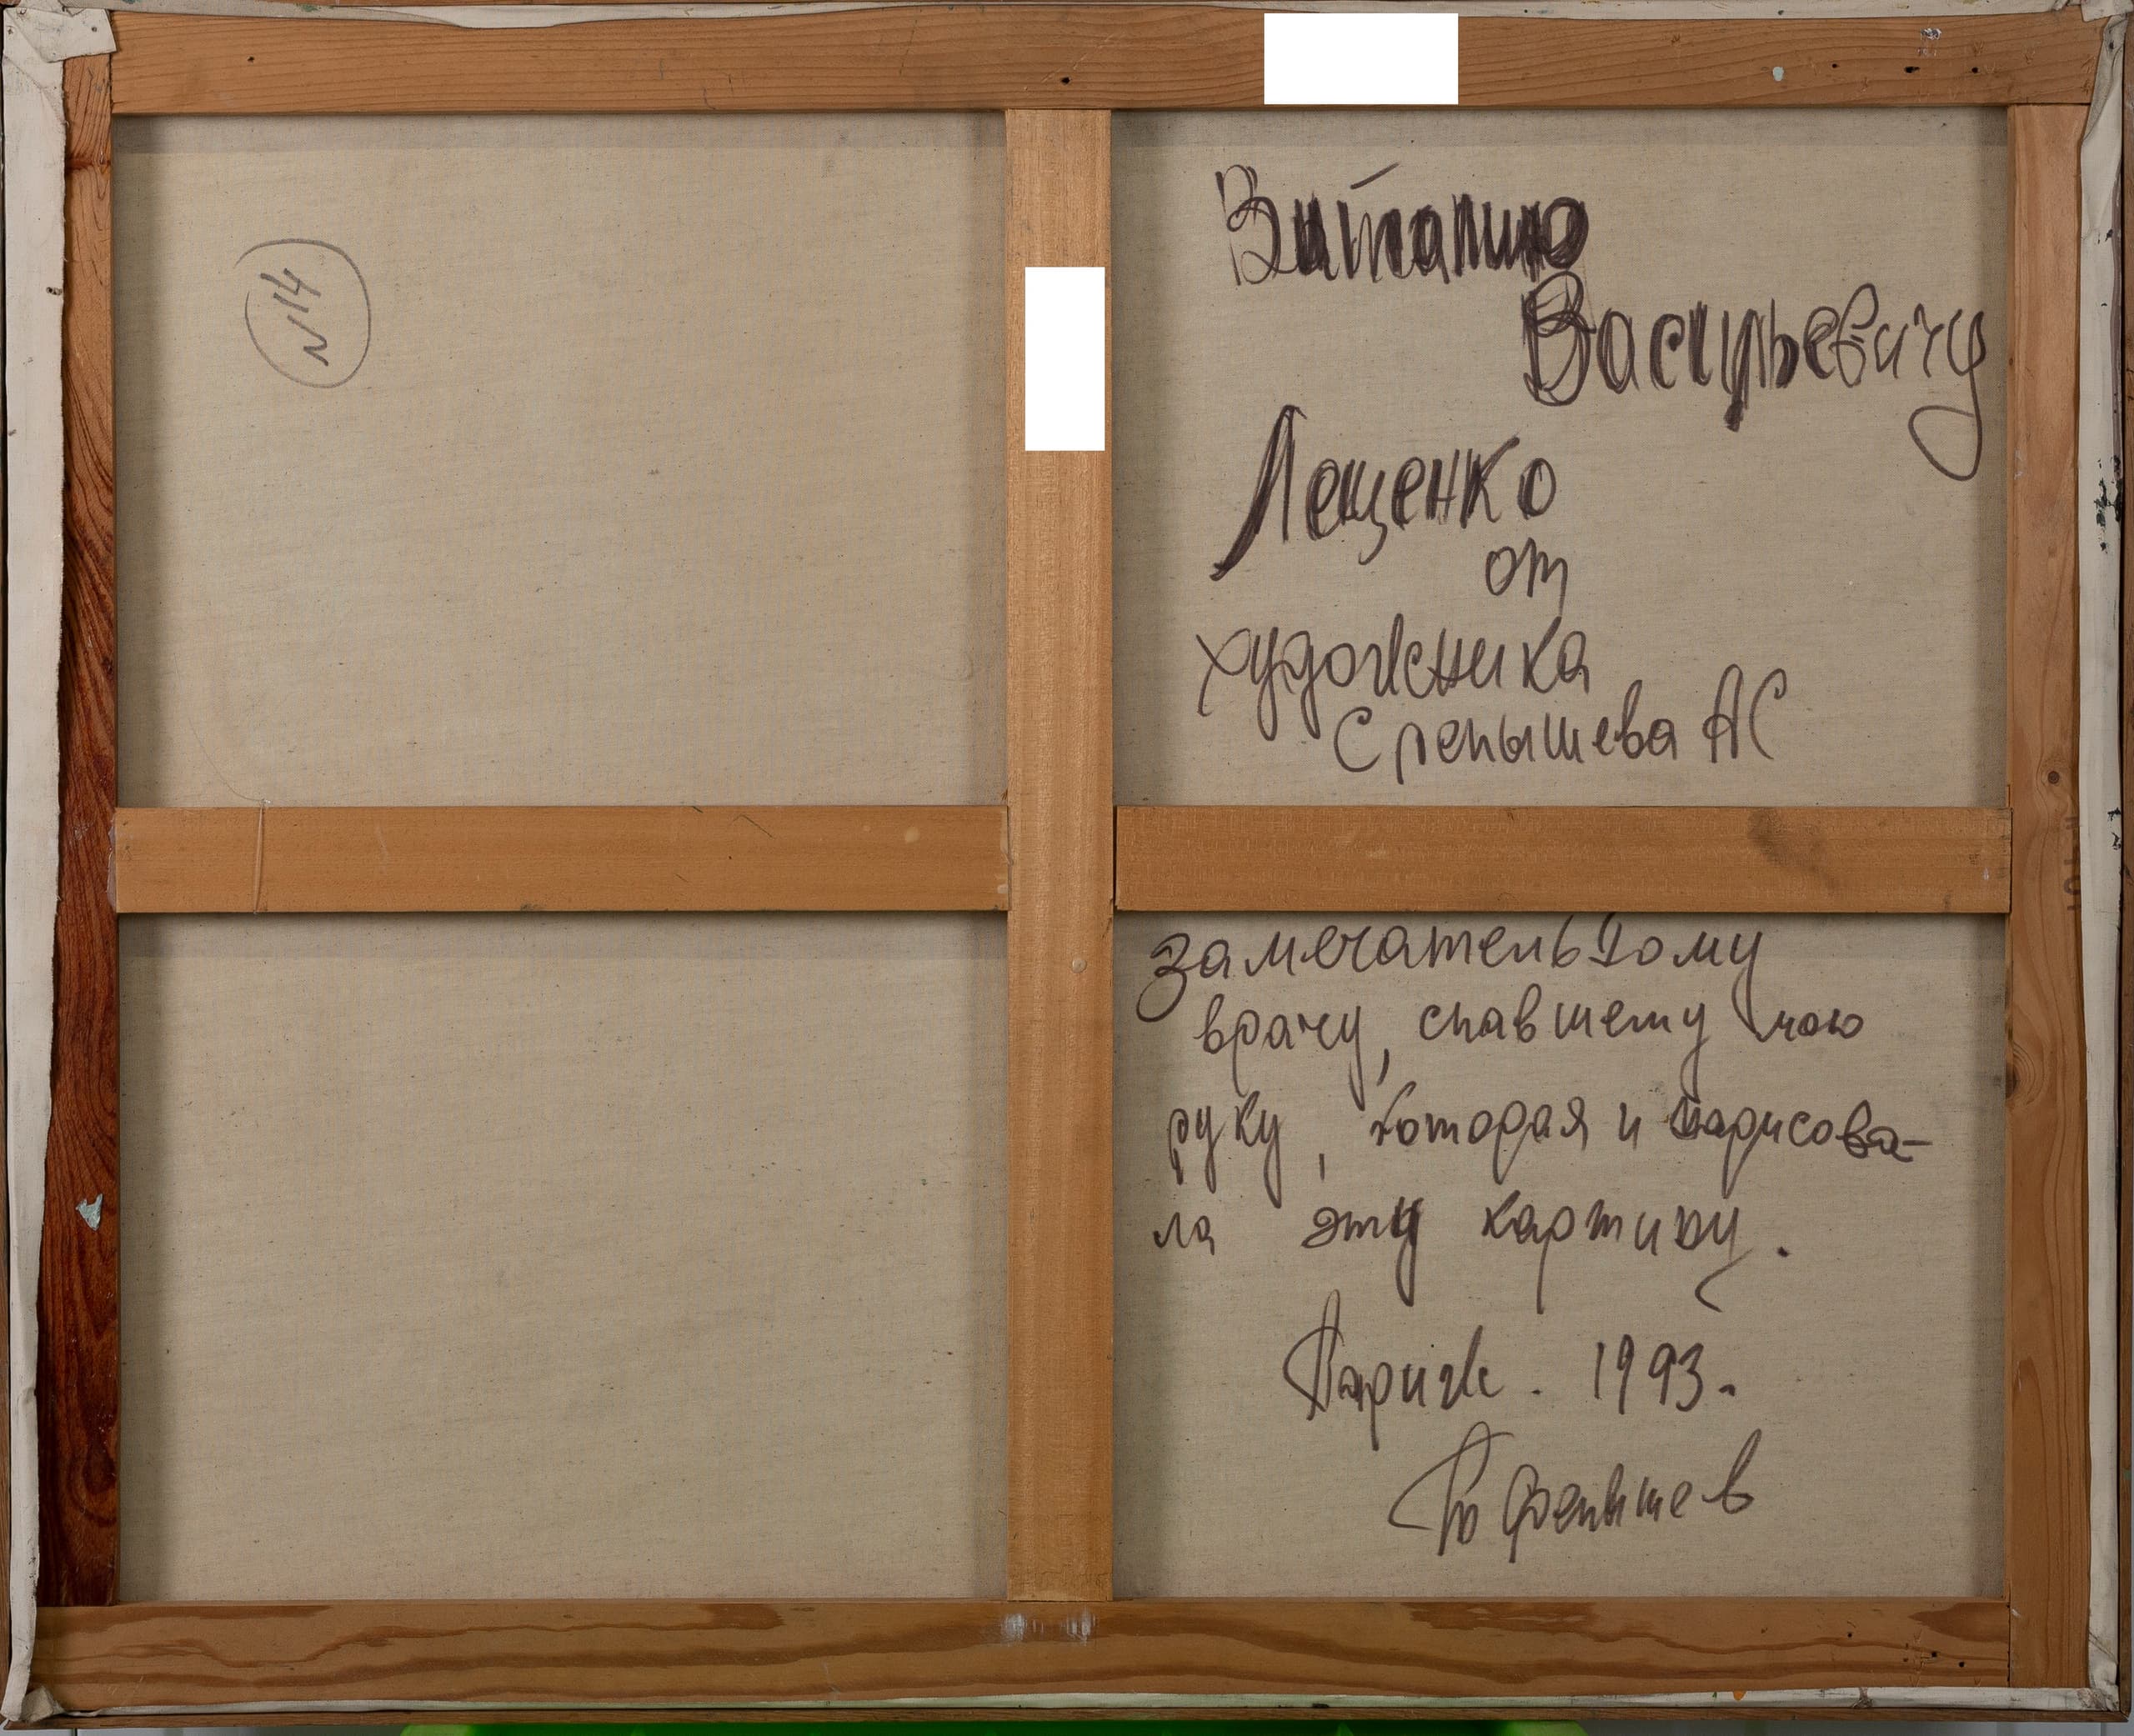 N14
Виталию
Васильевичу
Лещенко
от
художника
Слепышева АС
замечательному
врачу, спавшему мою
руку, которая и нарисова-
ла эту картину.
Париж. 1993.